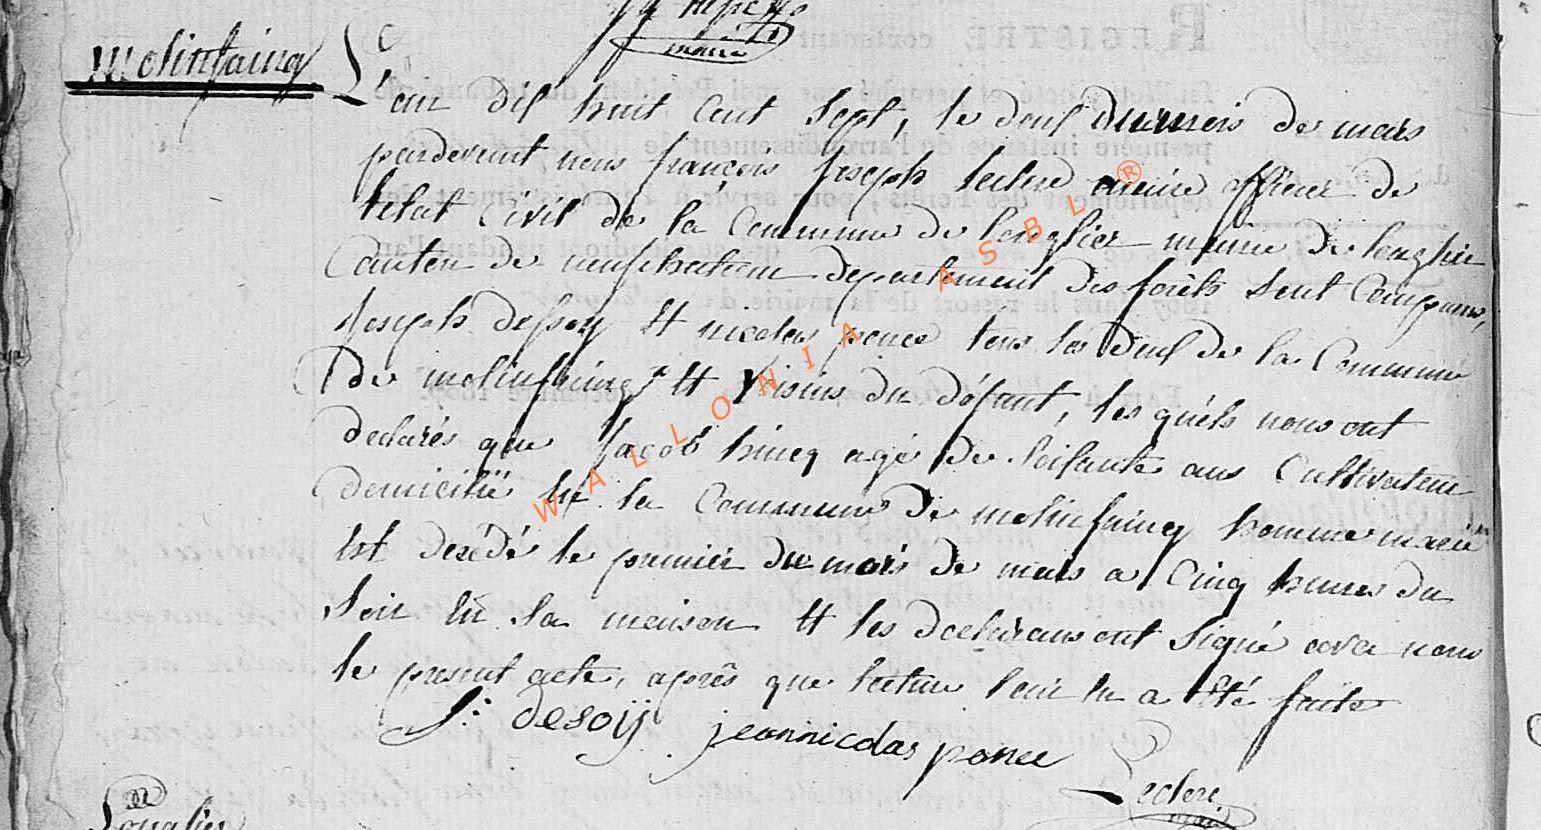 maire
molinfaing
L'an dix huit cent sept, le deux du mois de mars
pardevant nous françois joseph leclere maire officier de
l'etat civil de la Commune de longlier mairie de longlier
Canton de neufchateau departement des forêts sont Comparus,
Joseph desoy et nicolas ponce tous les deux de la Commune
De molinfaing et voisins du défunt, les quels nous ont
declarés que jacob hincq agé de soixante ans Cultivateur
domicilié en la Commune de molinfaing homme marié
est décédé le premier du mois de mars a cinq heures du
soir en sa maison et les declarans ont signé avec nous
le present acte, après que lecture leur en a été faite
J: desoÿ jean nicolas ponce
Leclere
maire
Longlier
WALLONIA ASBL ®